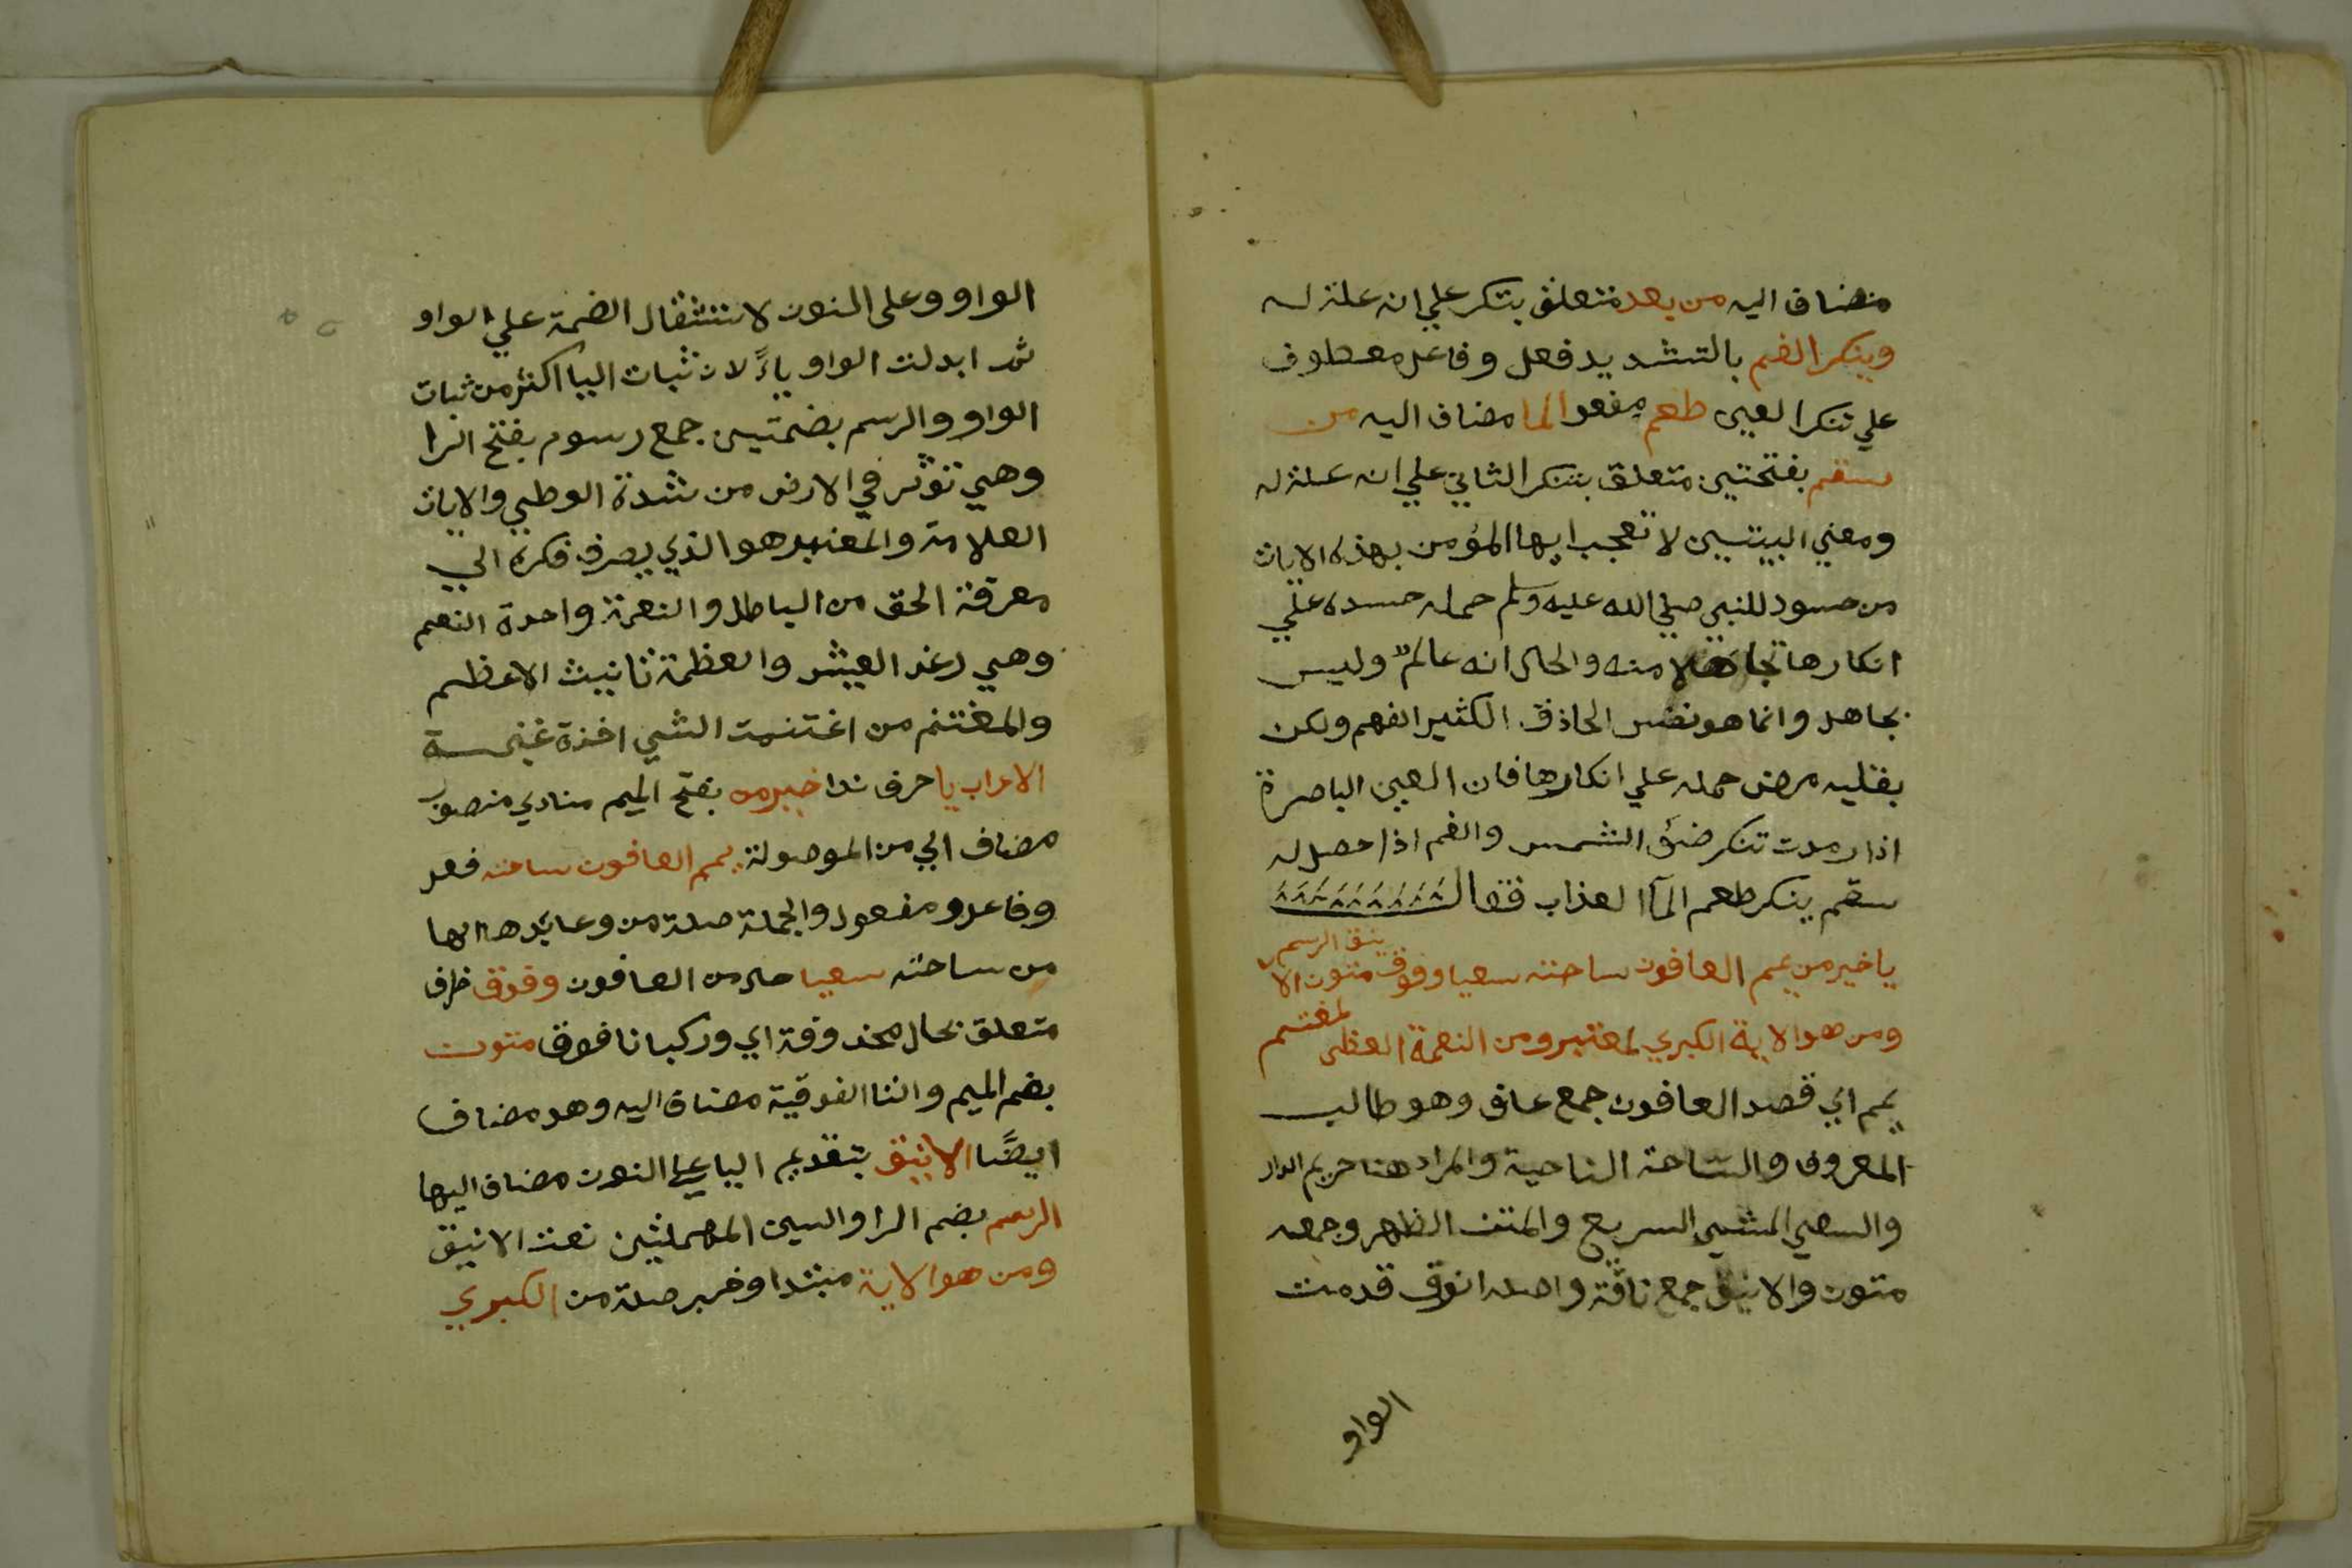 مضاف اليه من بعد متعلق بتنكر علي انه علة له
وينكر الفم بالتشديد فعل وفاعل معطوف
علي تنكر العين طعم مفعول الما مضاف اليه من
سقم بفتحتين متعلق بتنكر الثاني علي انه علة له
ومعني البيتين لا تعجب ايها المؤمن بهذه الايات
من حسود للنبي صلي الله عليه وسلم حمله حسده علي
انكارها تجاهلا منه والحال انه عالم وليس
بجاهل وانما هو نفس الحاذق الكثير الفهم ولكن
بقلبه مرض حمله علي انكارها فان العين الباصرة
اذا رمدت تنكر ضوء الشمس والفم اذا حصل له
سقم ينكر طعم المآ العذاب فقال
يا خير من يمم العافون ساحته سعيا وفوق متون الاينق الرسم
ومن هو الاية الكبري لمعتبر ومن النعمة العظمي لمغتنم
يمم اي قصد العافون جمع عاف وهو طالب
المعروف والساحة الناحية والمراد هنا حريم الدار
والسعي المشي السريع والمتن الظهر وجمعه
متون والاينق جمع ناقة واصله انوق قدمت
الواو
الواو وعلي النون لاستثقال الضمة علي الواو
ثم ابدلت الواو ياءً لان ثبات اليا اكثر من ثبات
الواو والرسم بضمتين جمع رسوم بفتح الرا
وهي تؤثر في الارض من شدة الوطي والايات
العلامة والمعتبر هو الذي يصرف فكره الي
معرفة الحق من الباطل والنعمة واحدة النعم
وهي رغد العيش والعظمة تانيث الاعظم
والمغتنم من اغتنمت الشي اخذة غنيمة
الاعراب يا حرف ندا خير من بفتح الميم منادي منصوب
مضاف الي من الموصولة يمم العافون ساحته فعل
وفاعل ومفعول والجملة صلة من وعايدها الها
من ساحته سعيا حال من العافون وفوق ظرف
متعلق بحال محذوفة اي وركبانا فوق متون
بضم الميم والتا الفوقية مضاف اليه وهو مضاف
ايضًا الاينق بتقديم اليا علي النون مضاف اليها
الرسم بضم الرا والسين المهملتين نعت الاينق
ومن هو الاية مبتدا وخبر صلة من الكبري